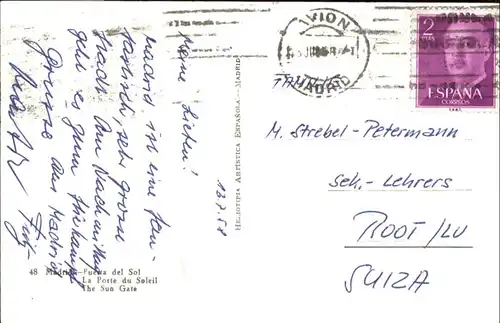 Meine Lieben!
Madrid ist eine
sehr grosse
Nach dem Nachmittag
geht es zum Stierkampf
Grüsse aus Madrid
48 Madrid - Puerta del Sol
La Porte du Soleil
The Sun Gate
HELIOTIPIA ARTÍSTICA ESPAÑOLA.-MADRID
13.7.58
AVION
MADRID
2
PTAS
ESPAÑA
CORREOS
M. Strebel-Petermann
Sek.-Lehrers
ROOT/LU
SUIZA